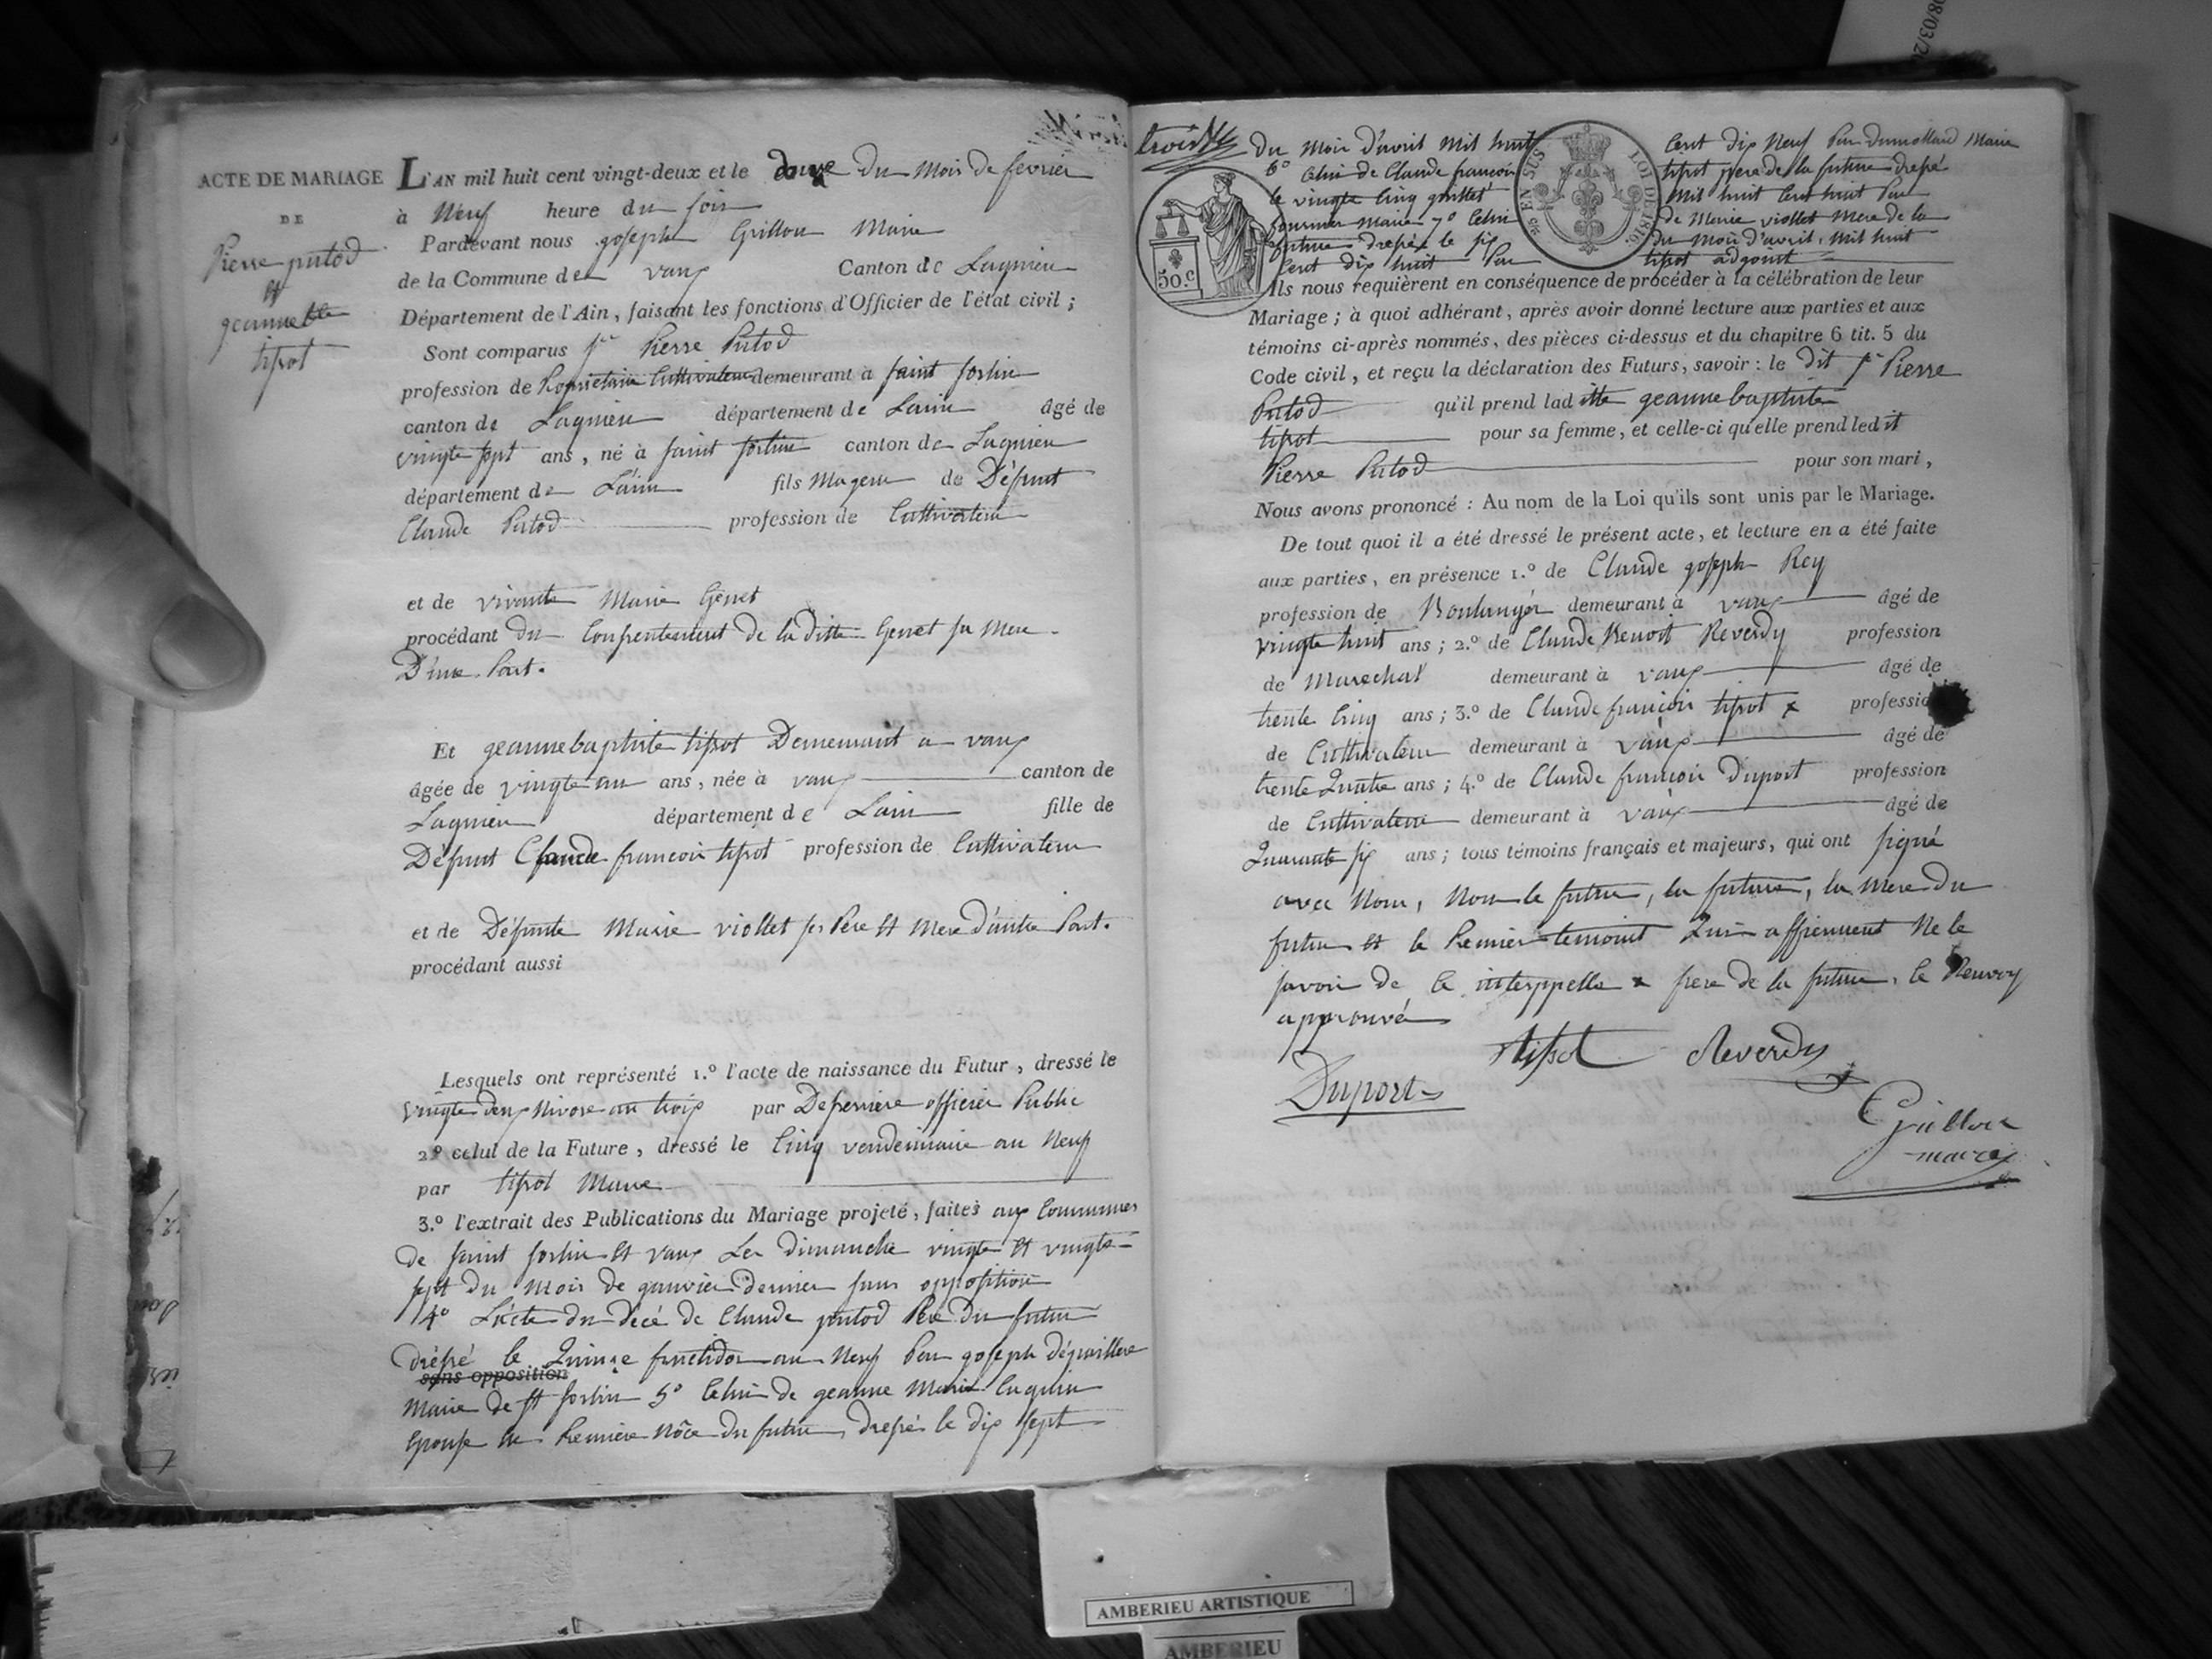 ACTE DE MARIAGE
DE
Pierre putod
et
geannebte
tipot
L'AN mil huit cent vingt-deux et le douze du mois de fevrier
à Neuf heure du soir
Pardevant nous goseph Grillon Maire
de la Commune de vaux Canton de Lagnieu
Département de l'Ain, faisant les fonctions d'Officier de l'état civil ;
Sont comparus sr Pierre Putod
profession deRopriétaire Cultivateur demeurant à saint sorlin
canton de Lagnieu département de Lain âgé de
vingte sept ans, né à saint sorlin canton de Lagnieu
département de L'ain fils Mageur de Défunt
Claude Putod profession de Cultivateur
et de vivante Marie Genet
procédant du Consentement de la ditte Genet sa Mere
D'une Part.
Et geannebaptiste tipot Demeurant a vaux
âgée de vingte un ans, née à vaux canton de
Lagnieu département de Lain fille de
Défunt Claude francois tipot profession de Cultivateur
et de Défunte Marie viollet ses Père et Mere d'autre Part.
procédant aussi
Lesquels ont représenté 1.º l'acte de naissance du Futur, dressé le
vingte deux Nivose an trois par Deferriere officier Public
2º celui de la Future, dressé le Cinq vendemiaire an Neuf
par tipot Maire
3.º l'extrait des Publications du Mariage projeté, faites aux Communes
de saint sorlin et vaux Les dimanche vingte et vingte
sept du Mois de ganvier dernier sans opposition
4º L'acte du décé de Claude putod Père du futur
dréssé le Quinze fructidor an Neuf Par goseph
sans opposition
Maire de st sorlin 5º Celui de geanne Marie
Epouse en Remiere Nôce du futur, dressé le dix sept
troisx du Mois d'avril Mil huit Cent dix Neuf Par dumollard Maire
6º Celui de Claude francois tipot pere de la future dressé
le vingte Cinq guillet Mil huit Cent huit Par
fournier Maire 7º Celui de Marie viollet Mere de la
future dressé le six du Mois d'avril, Mil huit
Cent dix huit Par tipot adgoint
50.C
EN SUS
LOI DE 1816
Ils nous requièrent en conséquence de procéder à la célébration de leur
Mariage ; à quoi adhérant, après avoir donné lecture aux parties et aux
témoins ci-après nommés, des pièces ci-dessus et du chapitre 6 tit. 5 du
Code civil, et reçu la déclaration des Futurs, savoir : le dit sr Pierre
Putod qu'il prend laditte geannebaptiste
tipot pour sa femme, et celle-ci qu'elle prend ledit
Pierre Putod pour son mari,
Nous avons prononcé : Au nom de la Loi qu'ils sont unis par le Mariage.
De tout quoi il a été dressé le présent acte, et lecture en a été faite
aux parties, en présence 1.º de Claude goseph Rey
profession de Boulangér demeurant à vaux âgé de
vingte huit ans ; 2.º de Claude Benoit Reverdy profession
de Marechal demeurant à vaux âgé de
trente Cinq ans ; 3.º de Claude françois tipot x profession
de Cultivateur demeurant à vaux âgé de
trente Quatre ans ; 4.º de Claude françois Duport profession
de Cultivateur demeurant à vaux âgé de
Quarante six ans ; tous témoins français et majeurs, qui ont signé
avec Nous, Non le futur, la future, la Mere du
futur et le Remier temoint Qui affirment Ne le
savoir de ce interppellé x frere de la future, le Renvoy
approuvé
tipot Reverdy
Duport
Grillon
maire
AMBERIEU ARTISTIQUE
AMBERIEU